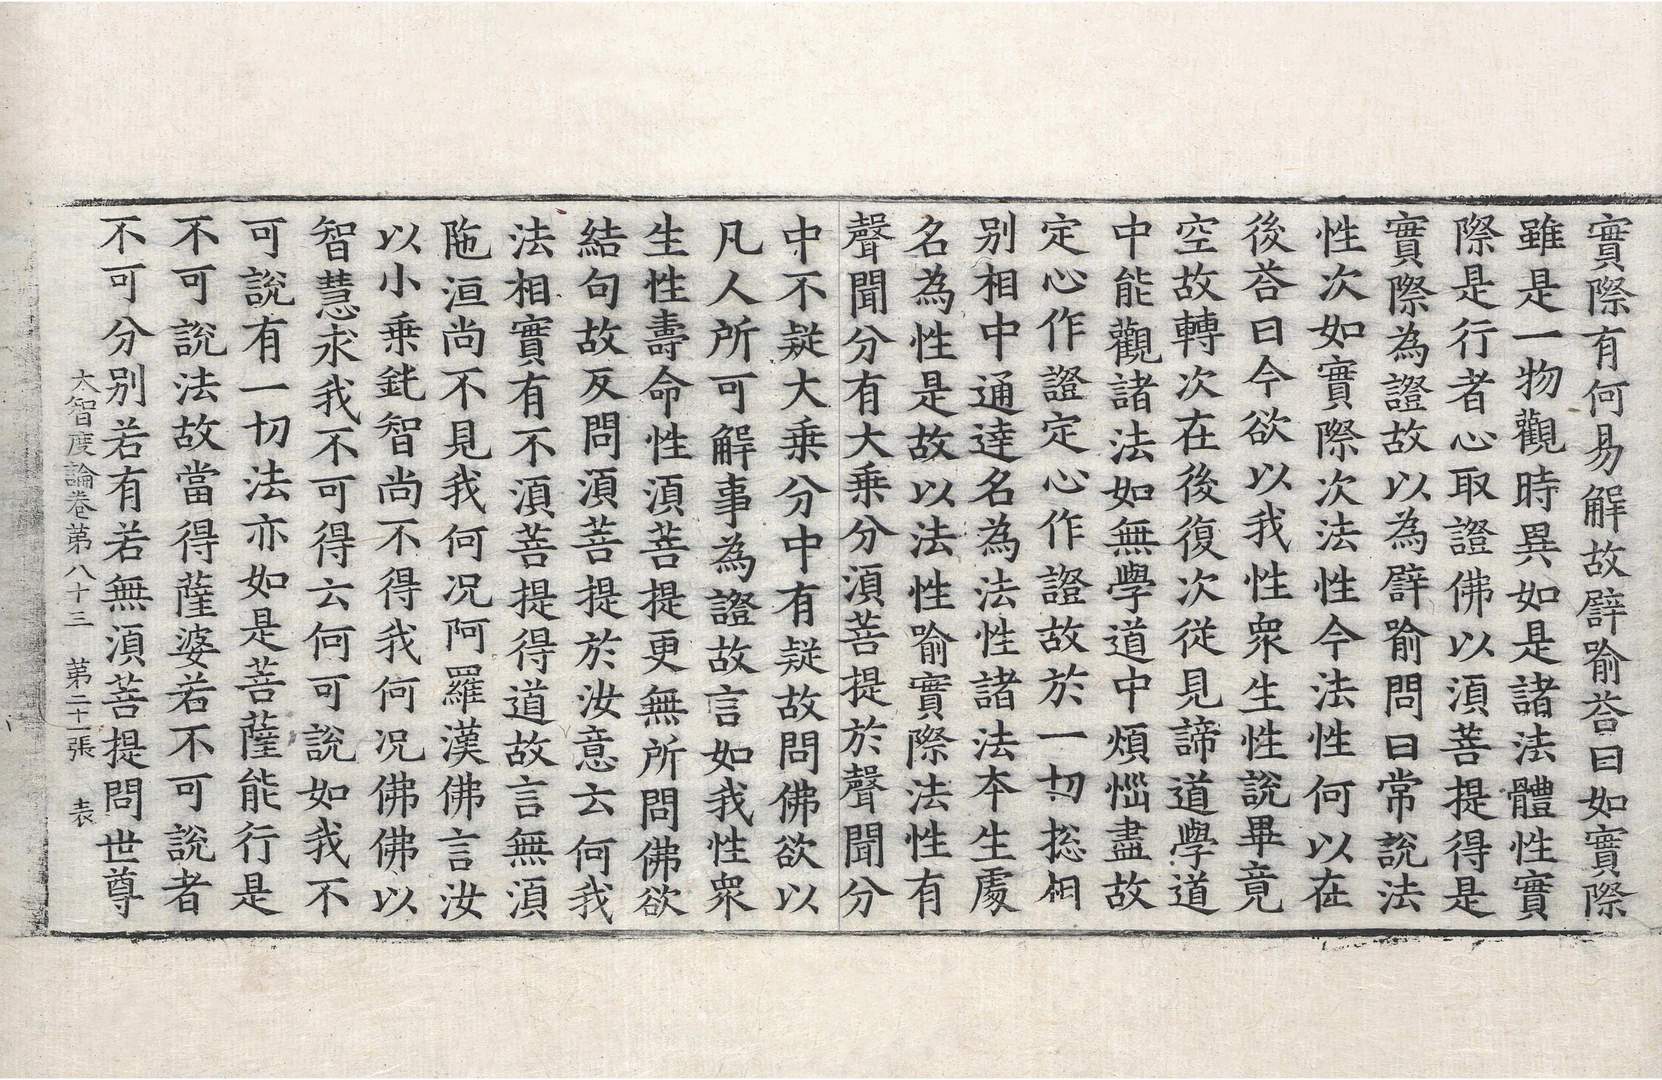 實際有何易解故譬喻荅曰如實際
雖是一物觀時異如是諸法體性實
際是行者心取證佛以湏菩提得是
實際為證故以為譬喻問曰常說法
性次如實際次法性今法性何以在
後荅曰今欲以我性衆生性說畢竟
空故轉次在後復次從見諦道學道
中能觀諸法如無學道中煩惱盡故
定心作證定心作證故於一切揔相
别相中通達名為法性諸法本生處
名為性是故以法性喻實際法性有
聲聞分有大乗分湏菩提於聲聞分
中不疑大乗分中有疑故問佛欲以
凡人所可解事為證故言如我性衆
生性壽命性湏菩提更無所問佛欲
結句故反問湏菩提於汝意云何我
法相實有不湏菩提得道故言無湏
陁洹尚不見我何况阿羅漢佛言汝
以小乗鈍智尚不得我何况佛佛以
智慧求我不可得云何可說如我不
可說有一切法亦如是菩薩能行是
不可說法故當得薩婆若不可說者
不可分别若有若無湏菩提問世尊
大智度論卷第八十三 第二十一張 表